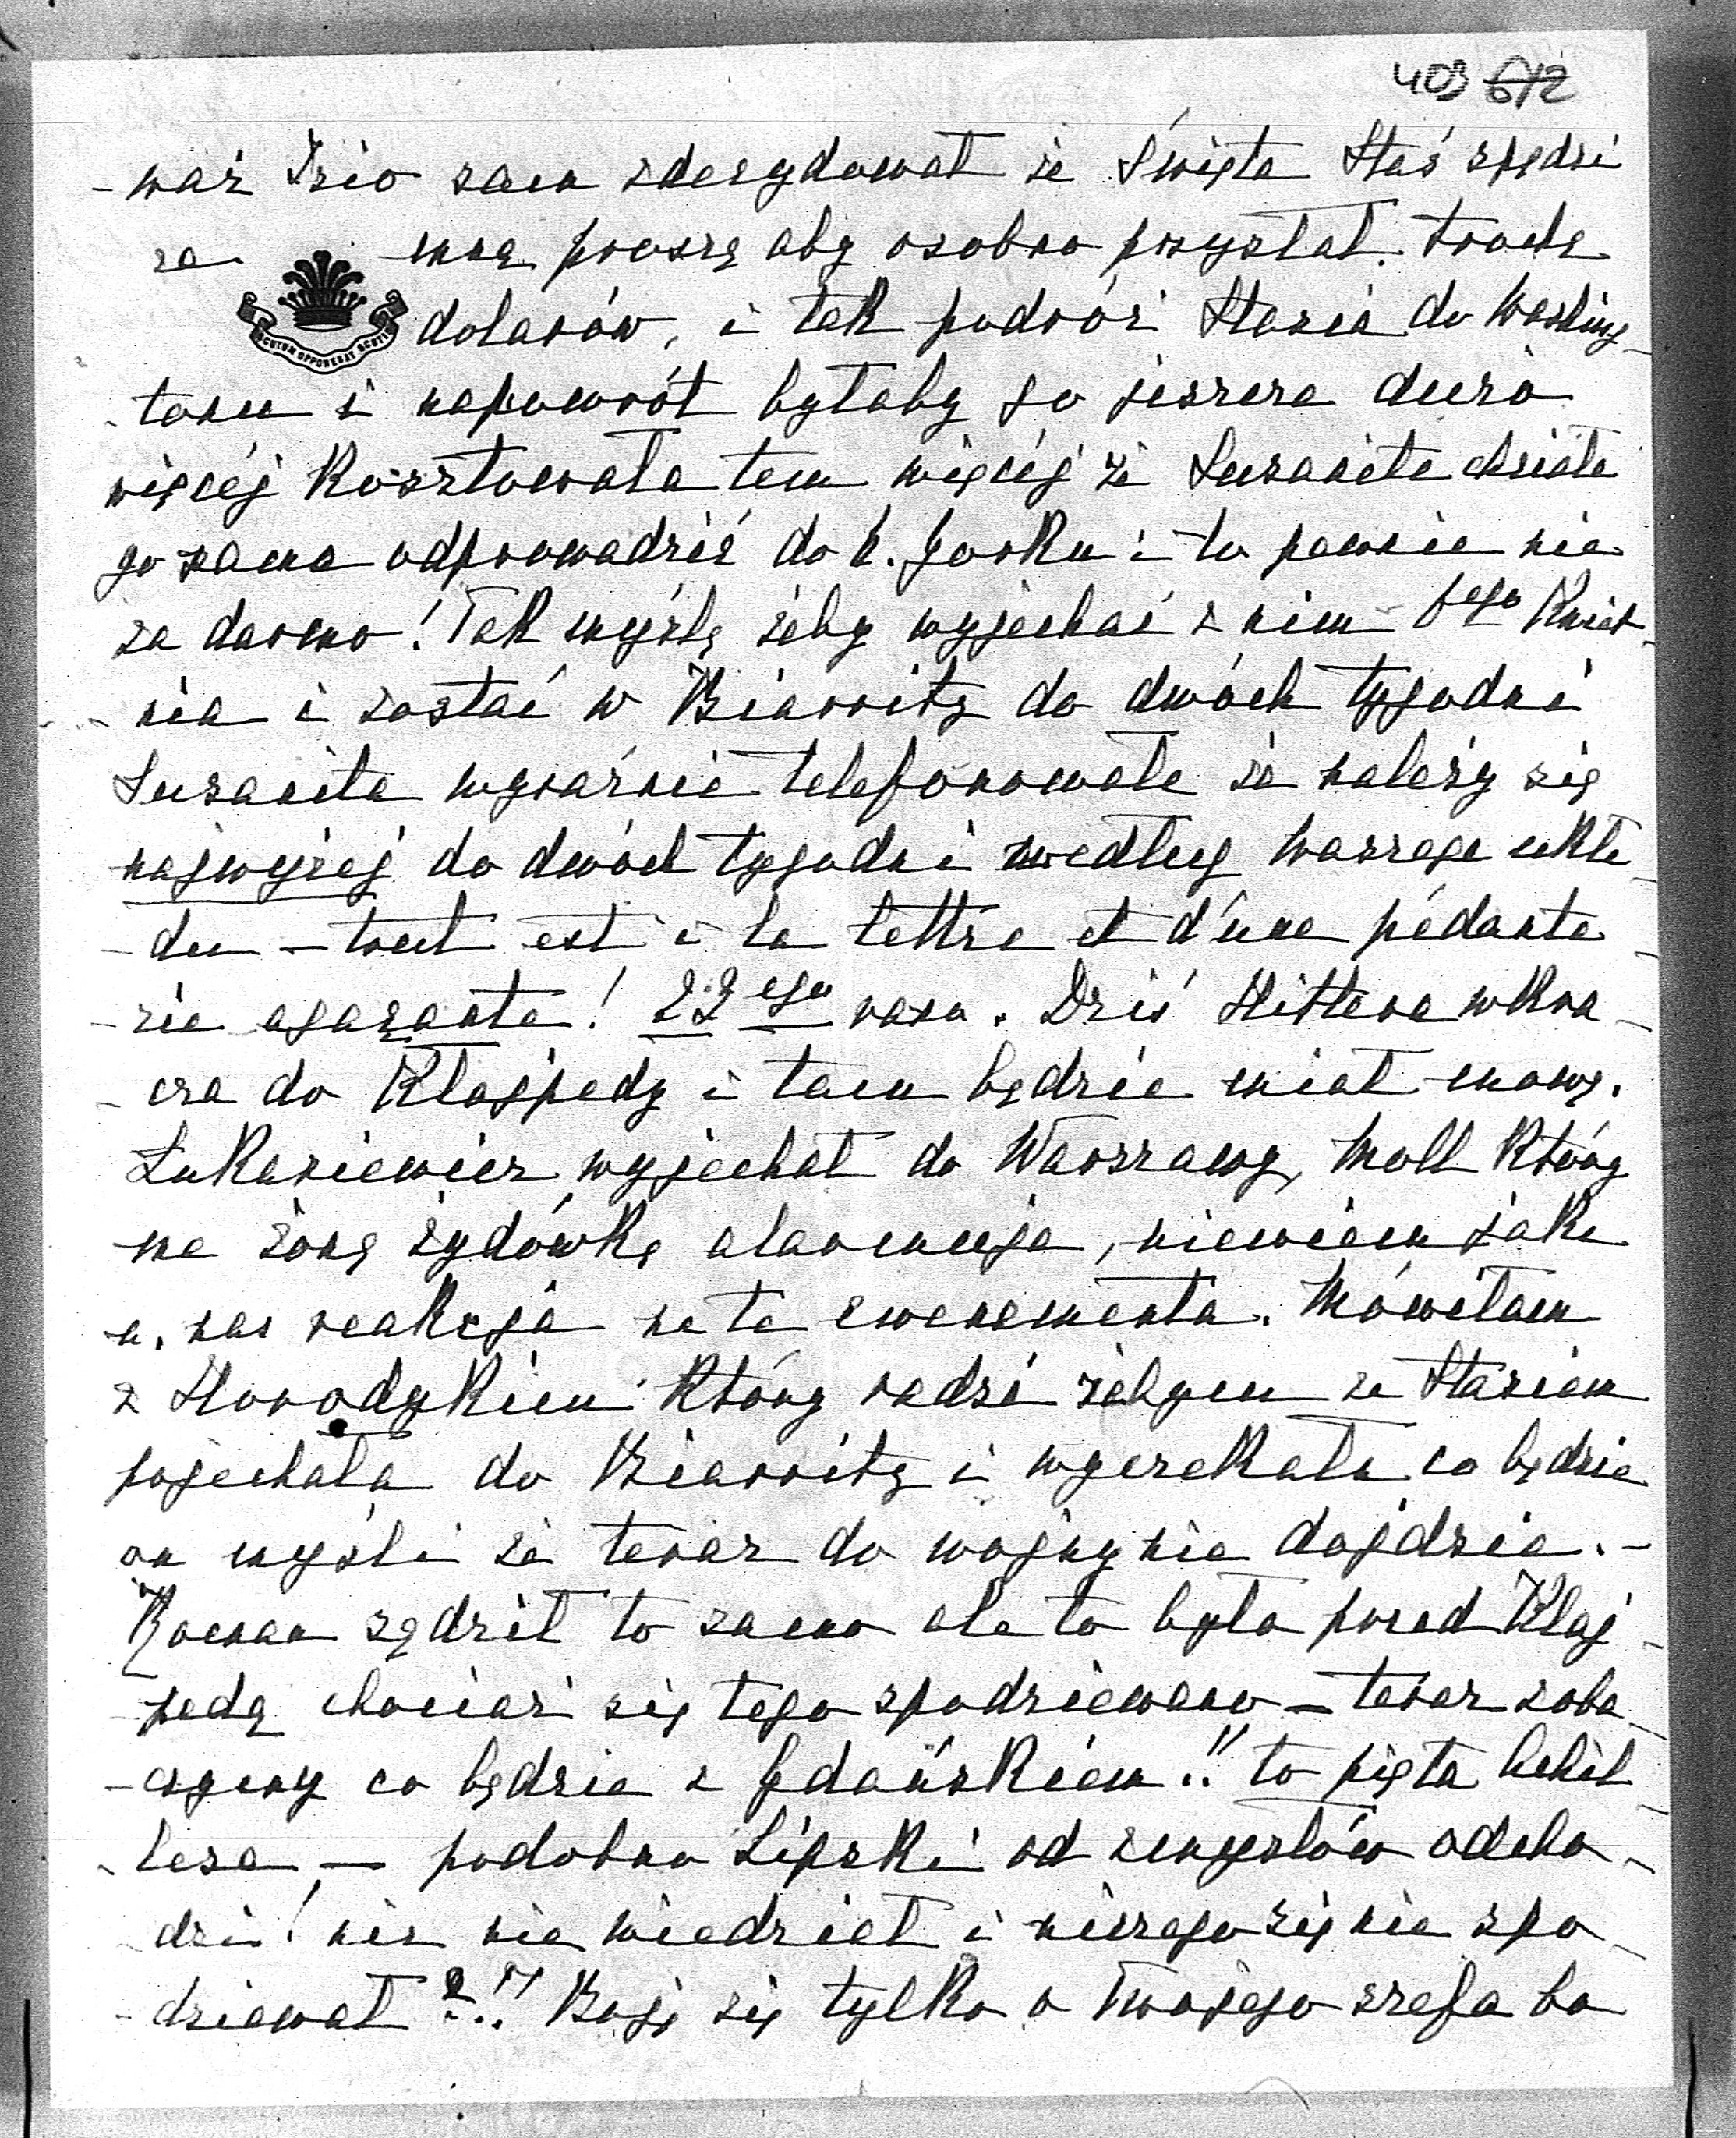 403 612
-waż Izio sam zdecydował że Święta Staś spędzi
ze mną proszę aby osobno przysłał trochę
SCUTUM OPPONEBAT SCUTIS
dolarów, i tak podróż Stasia do Washing-
tonu i napowrót byłaby go jeszcze dużo
więcéj kosztowała tem więcéj że Susanita chciała
go sama odprowadzić do N. Jorku i to pewnie nie
za darmo! Tak myślę żeby wyjechać z nim Kwiet-
nia i zostać w Biarritz do dwóch tygodni
Susanita wyraźnie telefonowała że należy się
najwyżej do dwóch tygodni według waszego ukła-
-du – tout est à la lettre et d'une pédante-
-rie agaçante! 22ego rano. Dziś Hitler wkra-
-cza do Kłajpedy i tam będzie miał mowę.
Łukasiewicz wyjechał do Warszawy, Moll który
ma żonę żydówkę alarmuje, niewiem jaka
u nas reakcja na te ewenementa. Mówiłam
z Horodykiem który radzi żebym ze Stasiem
pojechała do Biarritz i wyczekała co będzie
on myśli że teraz do wojny nie dojdzie. –
Roman sądził to samo ale to było przed Kłaj-
pedą chociaż się tego spodziewano – teraz zoba-
-czymy co będzie z Gdańskiem!! to pięta Achil-
-lesa – podobno Lipski od zmysłów odcho-
-dzi! nic nie wiedział i niczego się nie spo-
-dziewał?!! Boję się tylko o Twojego szefa bo